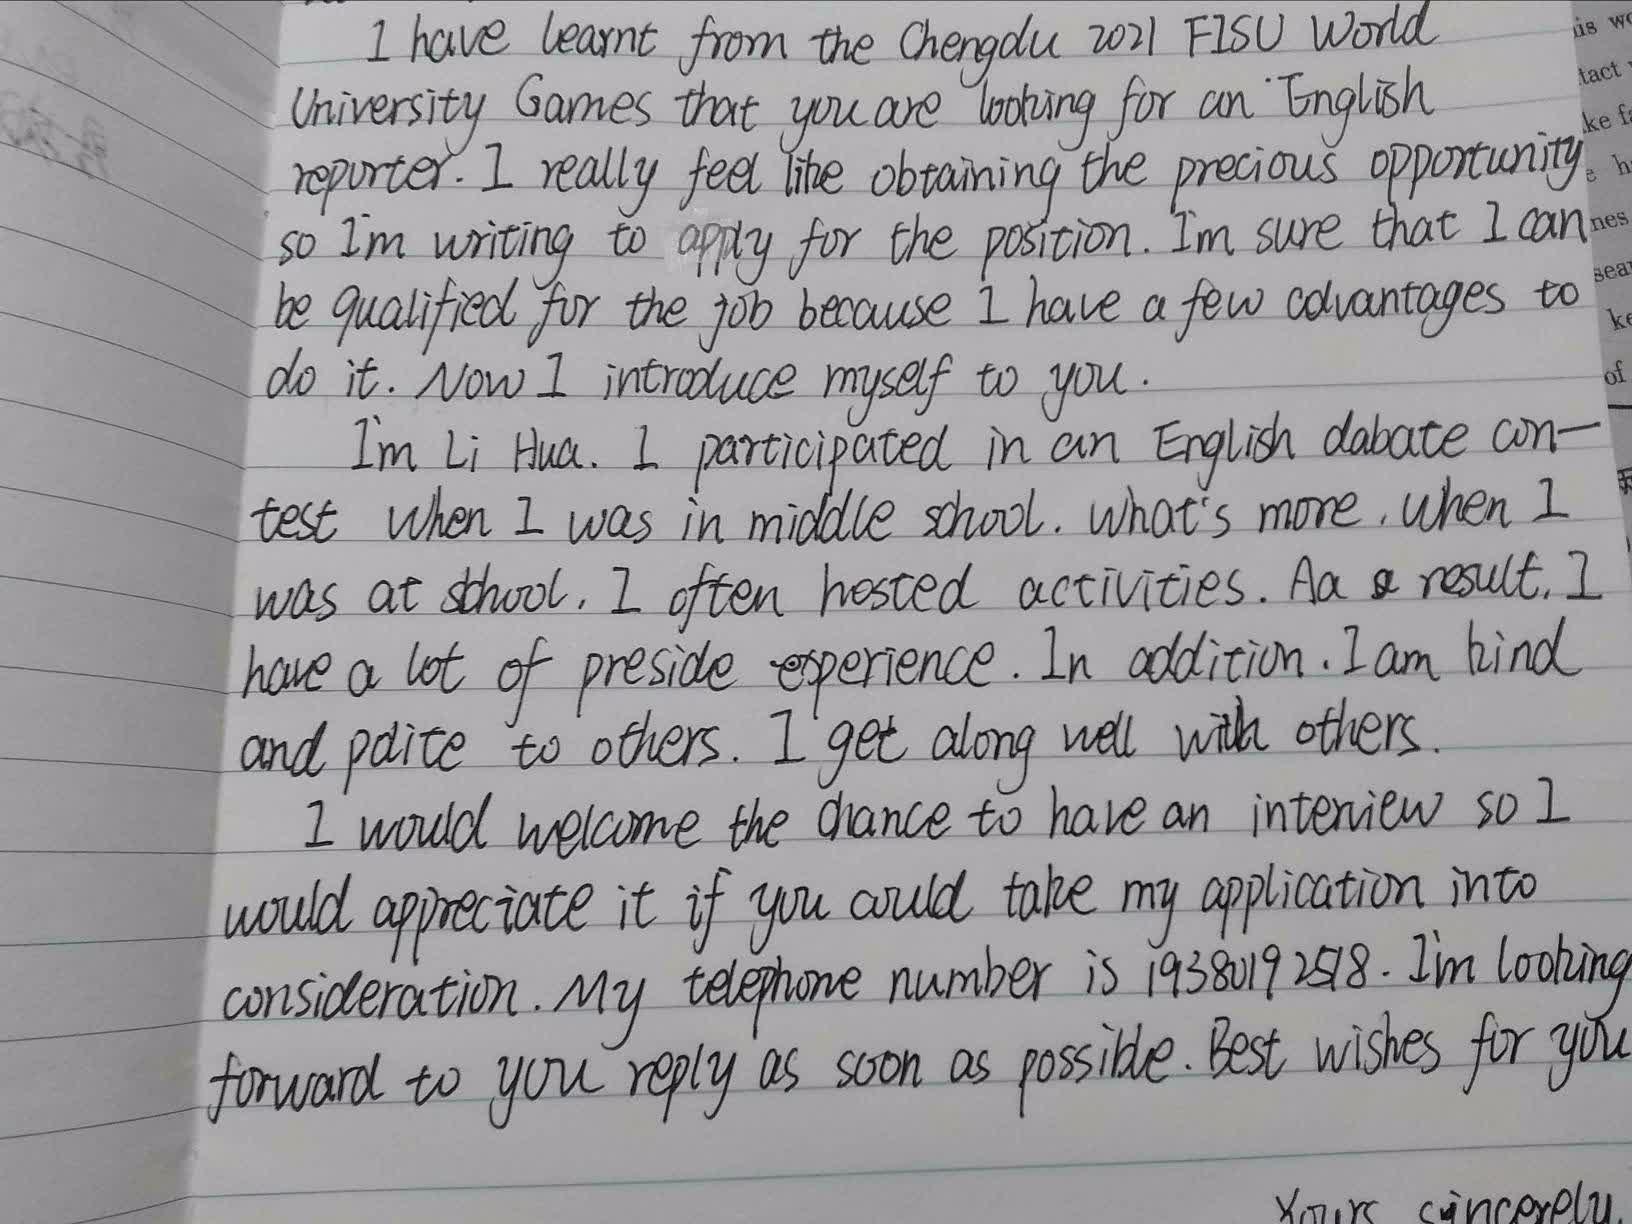 I have learnt from the Chengdu 2021 FISU World
University Games that you are looking for an English
reporter. I really feel like obtaining the precious opportunity
so I'm writing to apply for the position. I'm sure that I can
be qualified for the job because I have a few advantages to
do it. Now I introduce myself to you.
I'm Li Hua. I participated in an English dabate con-
test when I was in middle school. What's more, when I
was at school, I often hosted activities. Aa a result, I
have a lot of preside experience. In addition, I am kind
and polite to others. I get along well with others.
I would welcome the chance to have an interview so I
would appreciate it if you could take my application into
consideration. My telephone number is 19380192518. I'm looking
forward to you reply as soon as possible. Best wishes for you
Yours sincerely,
tact
of